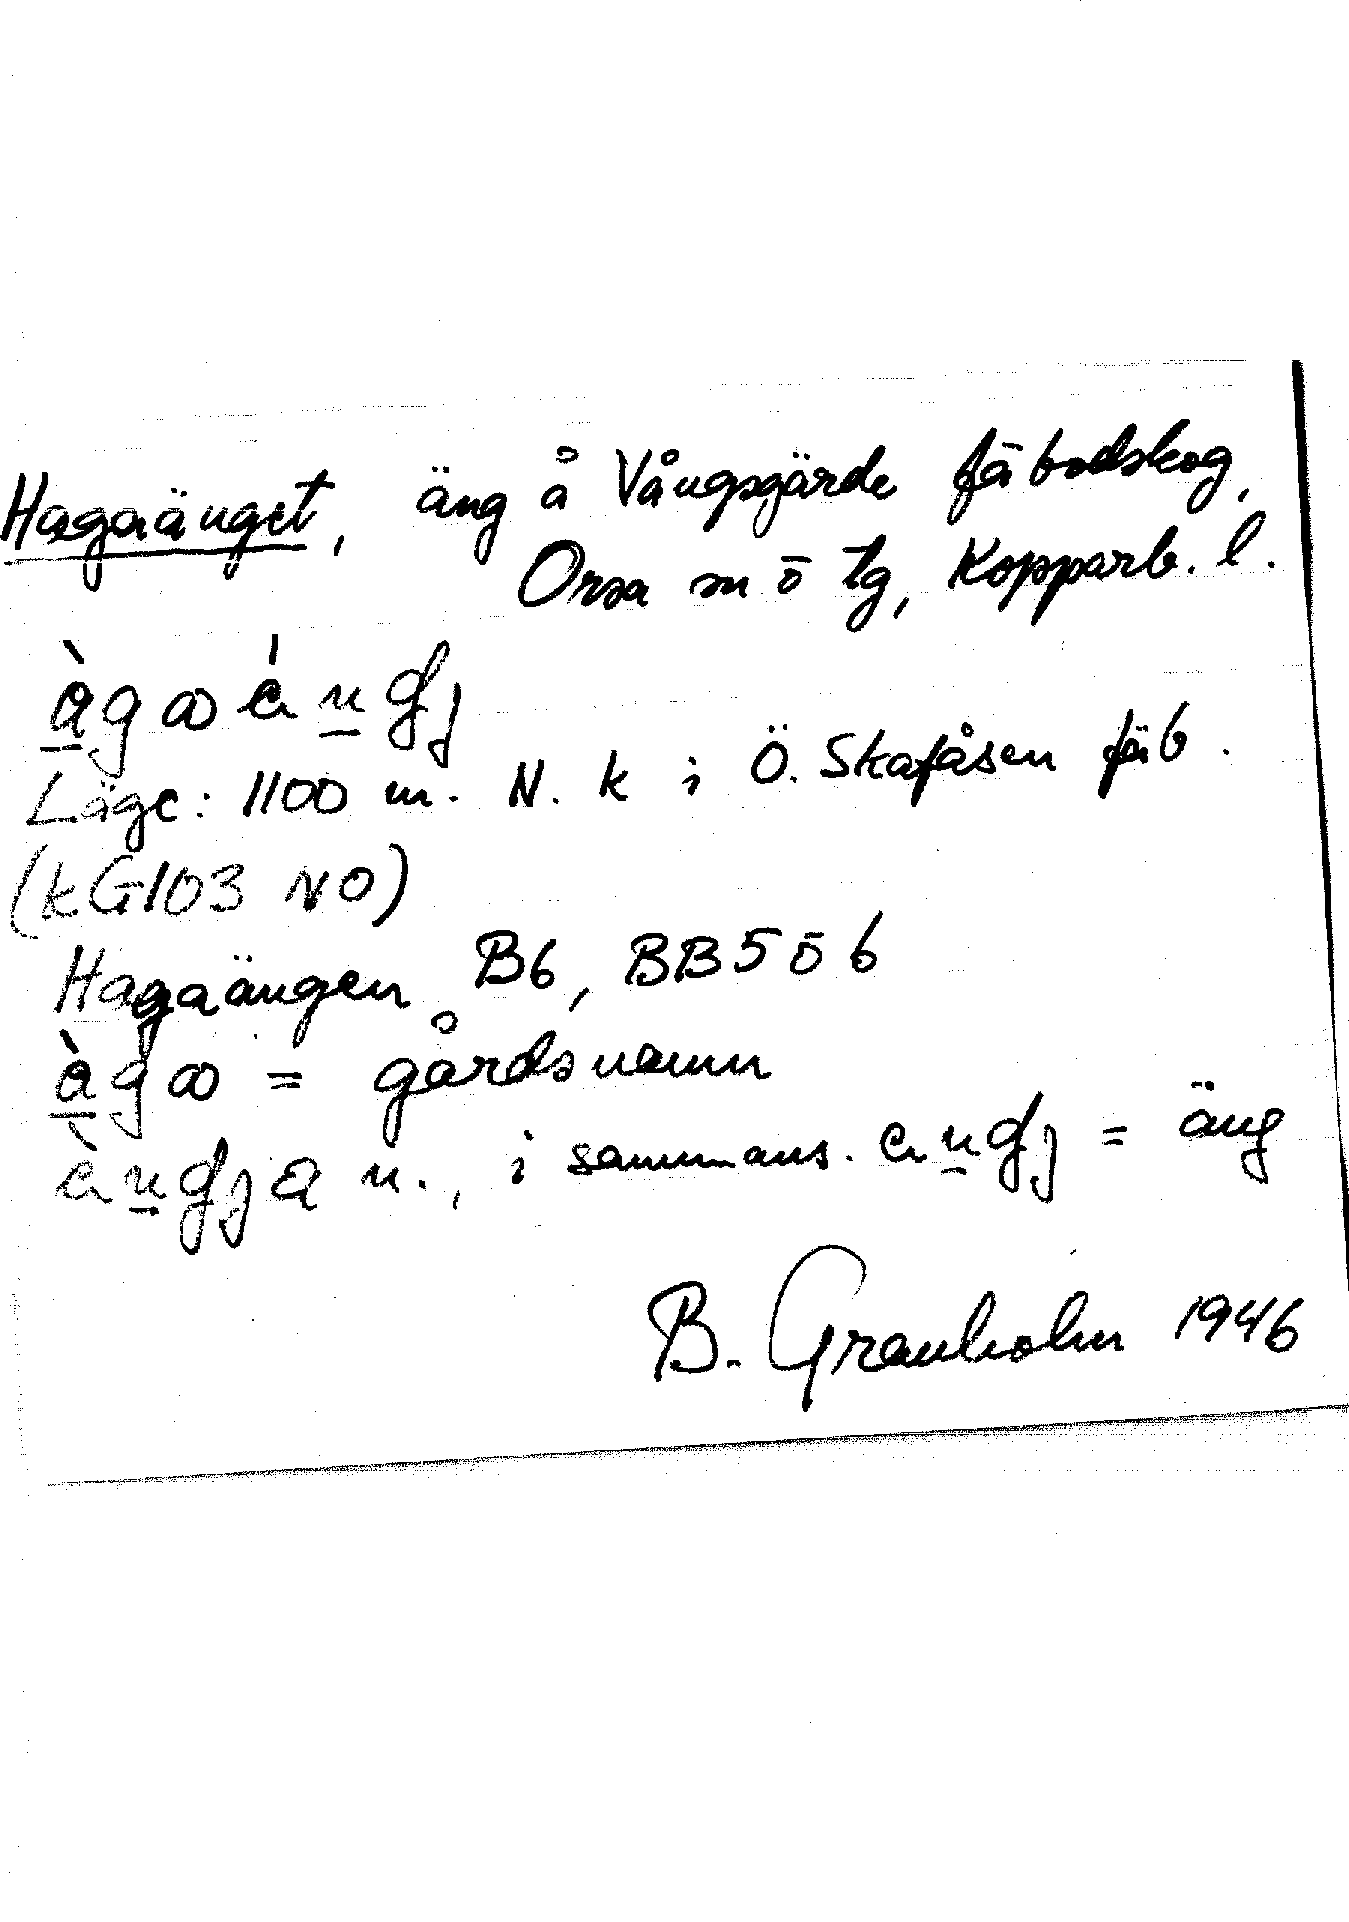 Hagaänget, äng å Vångsgärde fäbodskog,
Orsa sn ō tg, Kopparb. l.
Läge: 1100 m. N. k i Ö. Skafåsen fäb.
(kG103 NO)
Hagaängen B6, BB5 ō 6
= gårdsnamn
n., i sammans. = äng
B. Granholm 1946